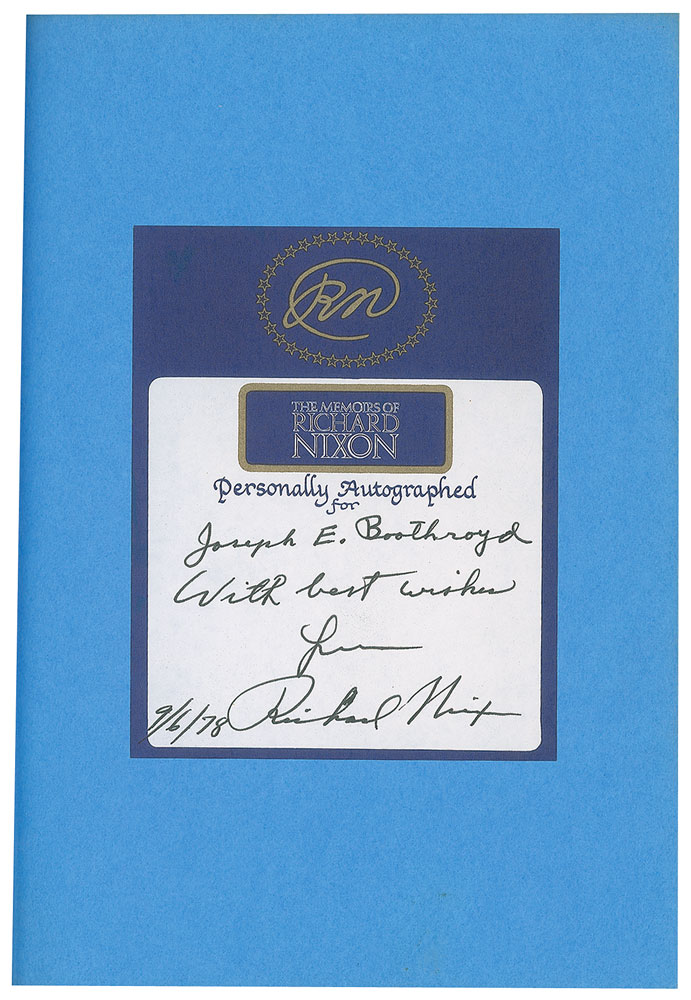 RN
THE MEMOIRS OF
RICHARD
NIXON
Personally Autographed
for
Joseph E. Boothroyd
With best wishes
from
9/6/78 Richard Nixon